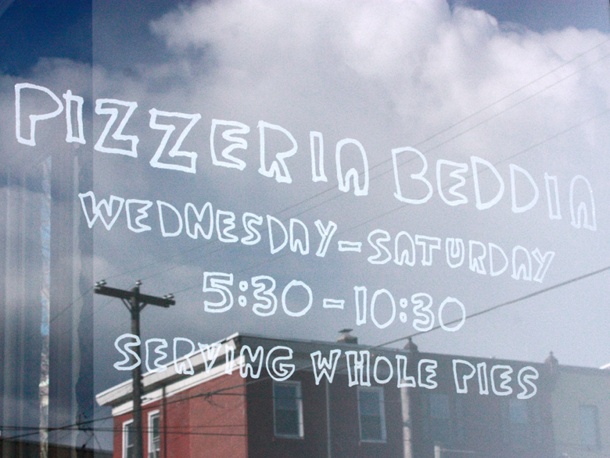 PIZZERIA BEDDIA
WEDNESDAY-SATURDAY
5:30-10:30
SERVING WHOLE PIES